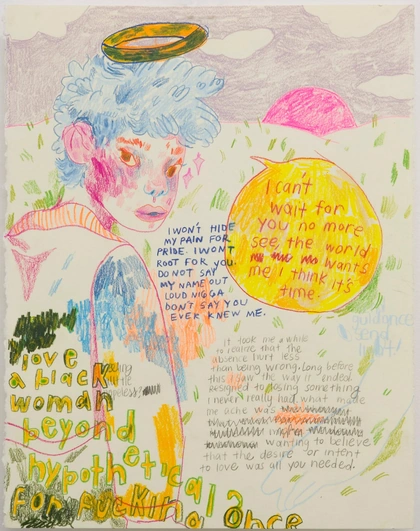 I can't
wait for
you no more
see, the world
wants
me I think it's
time.
I WON'T HIDE
MY PAIN FOR
PRIDE I WONT
ROOT FOR YOU.
DO NOT SAY
MY NAME OUT
LOUD NIGGA
DON'T SAY YOU
EVER KNEW ME.
guidance
send
light!
it took me a while
to realize that the
absence hurt less
than being wrong. Long before
this I saw the way it ended
resigned to losing something
I never really had. what made
me ache was
wanting to believe
that the desire or intent
to love was all you needed.
love
a black
woman
beyond
hypothetical?
FOR FUCKING ONCE